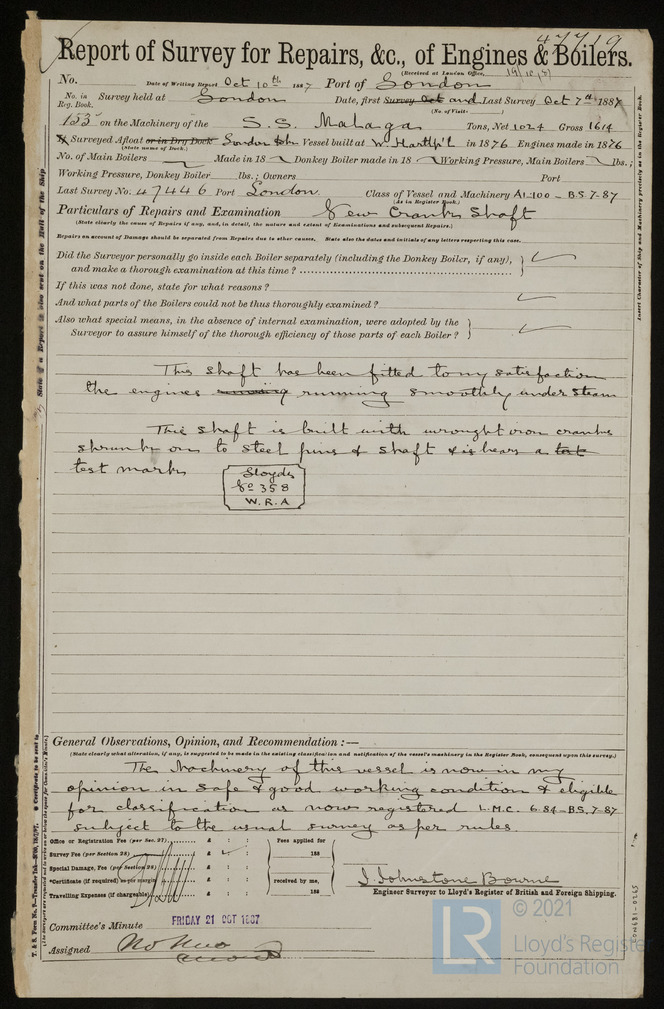 47719
Report of Survey for Repairs, &c., of Engines & Boilers.
(Received at London Office, 19/10/87)
No. Date of Writing Report Oct 10th 1887 Port of London
No. in Reg. Book. Survey held at London Date, first Survey Oct and Last Survey Oct 7th 1887
(No. of Visits )
153 on the Machinery of the S.S. Malaga Tons, Net 1024 Gross 1614
Surveyed Afloat or in Dry Dock London Vessel built at W Hartlp'l in 1876 Engines made in 1876
(State name of Dock.)
No. of Main Boilers Made in 18 Donkey Boiler made in 18 Working Pressure, Main Boilers lbs.;
Working Pressure, Donkey Boiler lbs.; Owners Port
Last Survey No. 47446 Port London Class of Vessel and Machinery A1.100 - B.S 7-87
(As in Register Book.)
Particulars of Repairs and Examination New Crank Shaft
(State clearly the cause of Repairs if any, and, in detail, the nature and extent of Examinations and subsequent Repairs.)
Repairs on account of Damage should be separated from Repairs due to other causes. State also the dates and initials of any letters respecting this case.
Did the Surveyor personally go inside each Boiler separately (including the Donkey Boiler, if any),
and make a thorough examination at this time?
If this was not done, state for what reasons?
And what parts of the Boilers could not be thus thoroughly examined?
Also what special means, in the absence of internal examination, were adopted by the
Surveyor to assure himself of the thorough efficiency of those parts of each Boiler?
This shaft has been fitted to my satisfaction
the engines running smoothly under steam
This shaft is built with wrought iron cranks
shrunk on to steel pins & shaft & is bears a test
test marks
Lloyds
No 358
W.R.A
General Observations, Opinion, and Recommendation:—
(State clearly what alteration, if any, is suggested to be made in the existing classification and notification of the vessel's machinery in the Register Book, consequent upon this survey.)
The Machinery of this vessel is now in my
opinion in safe & good working condition & eligible
for classification as now registered L.M.C. 6.84 - B.S. 7-87
subject to the usual survey as per rules.
Office or Registration Fee (per Sec. 27) £ : : Fees applied for
Survey Fee (per Section 28) £ : : 188
Special Damage, Fee (per Section 28) £ : :
*Certificate (if required) as per margin £ : : received by me,
Travelling Expenses (if chargeable) £ : : 188
J. Johnstone Bourne
Engineer Surveyor to Lloyd's Register of British and Foreign Shipping.
Committee's Minute FRIDAY 21 OCT 1887
Assigned
State if a Report is also sent on the Hull of the Ship
Insert Character of Ship and Machinery precisely as in the Register Book.
LR
© 2021
Lloyd's Register
Foundation